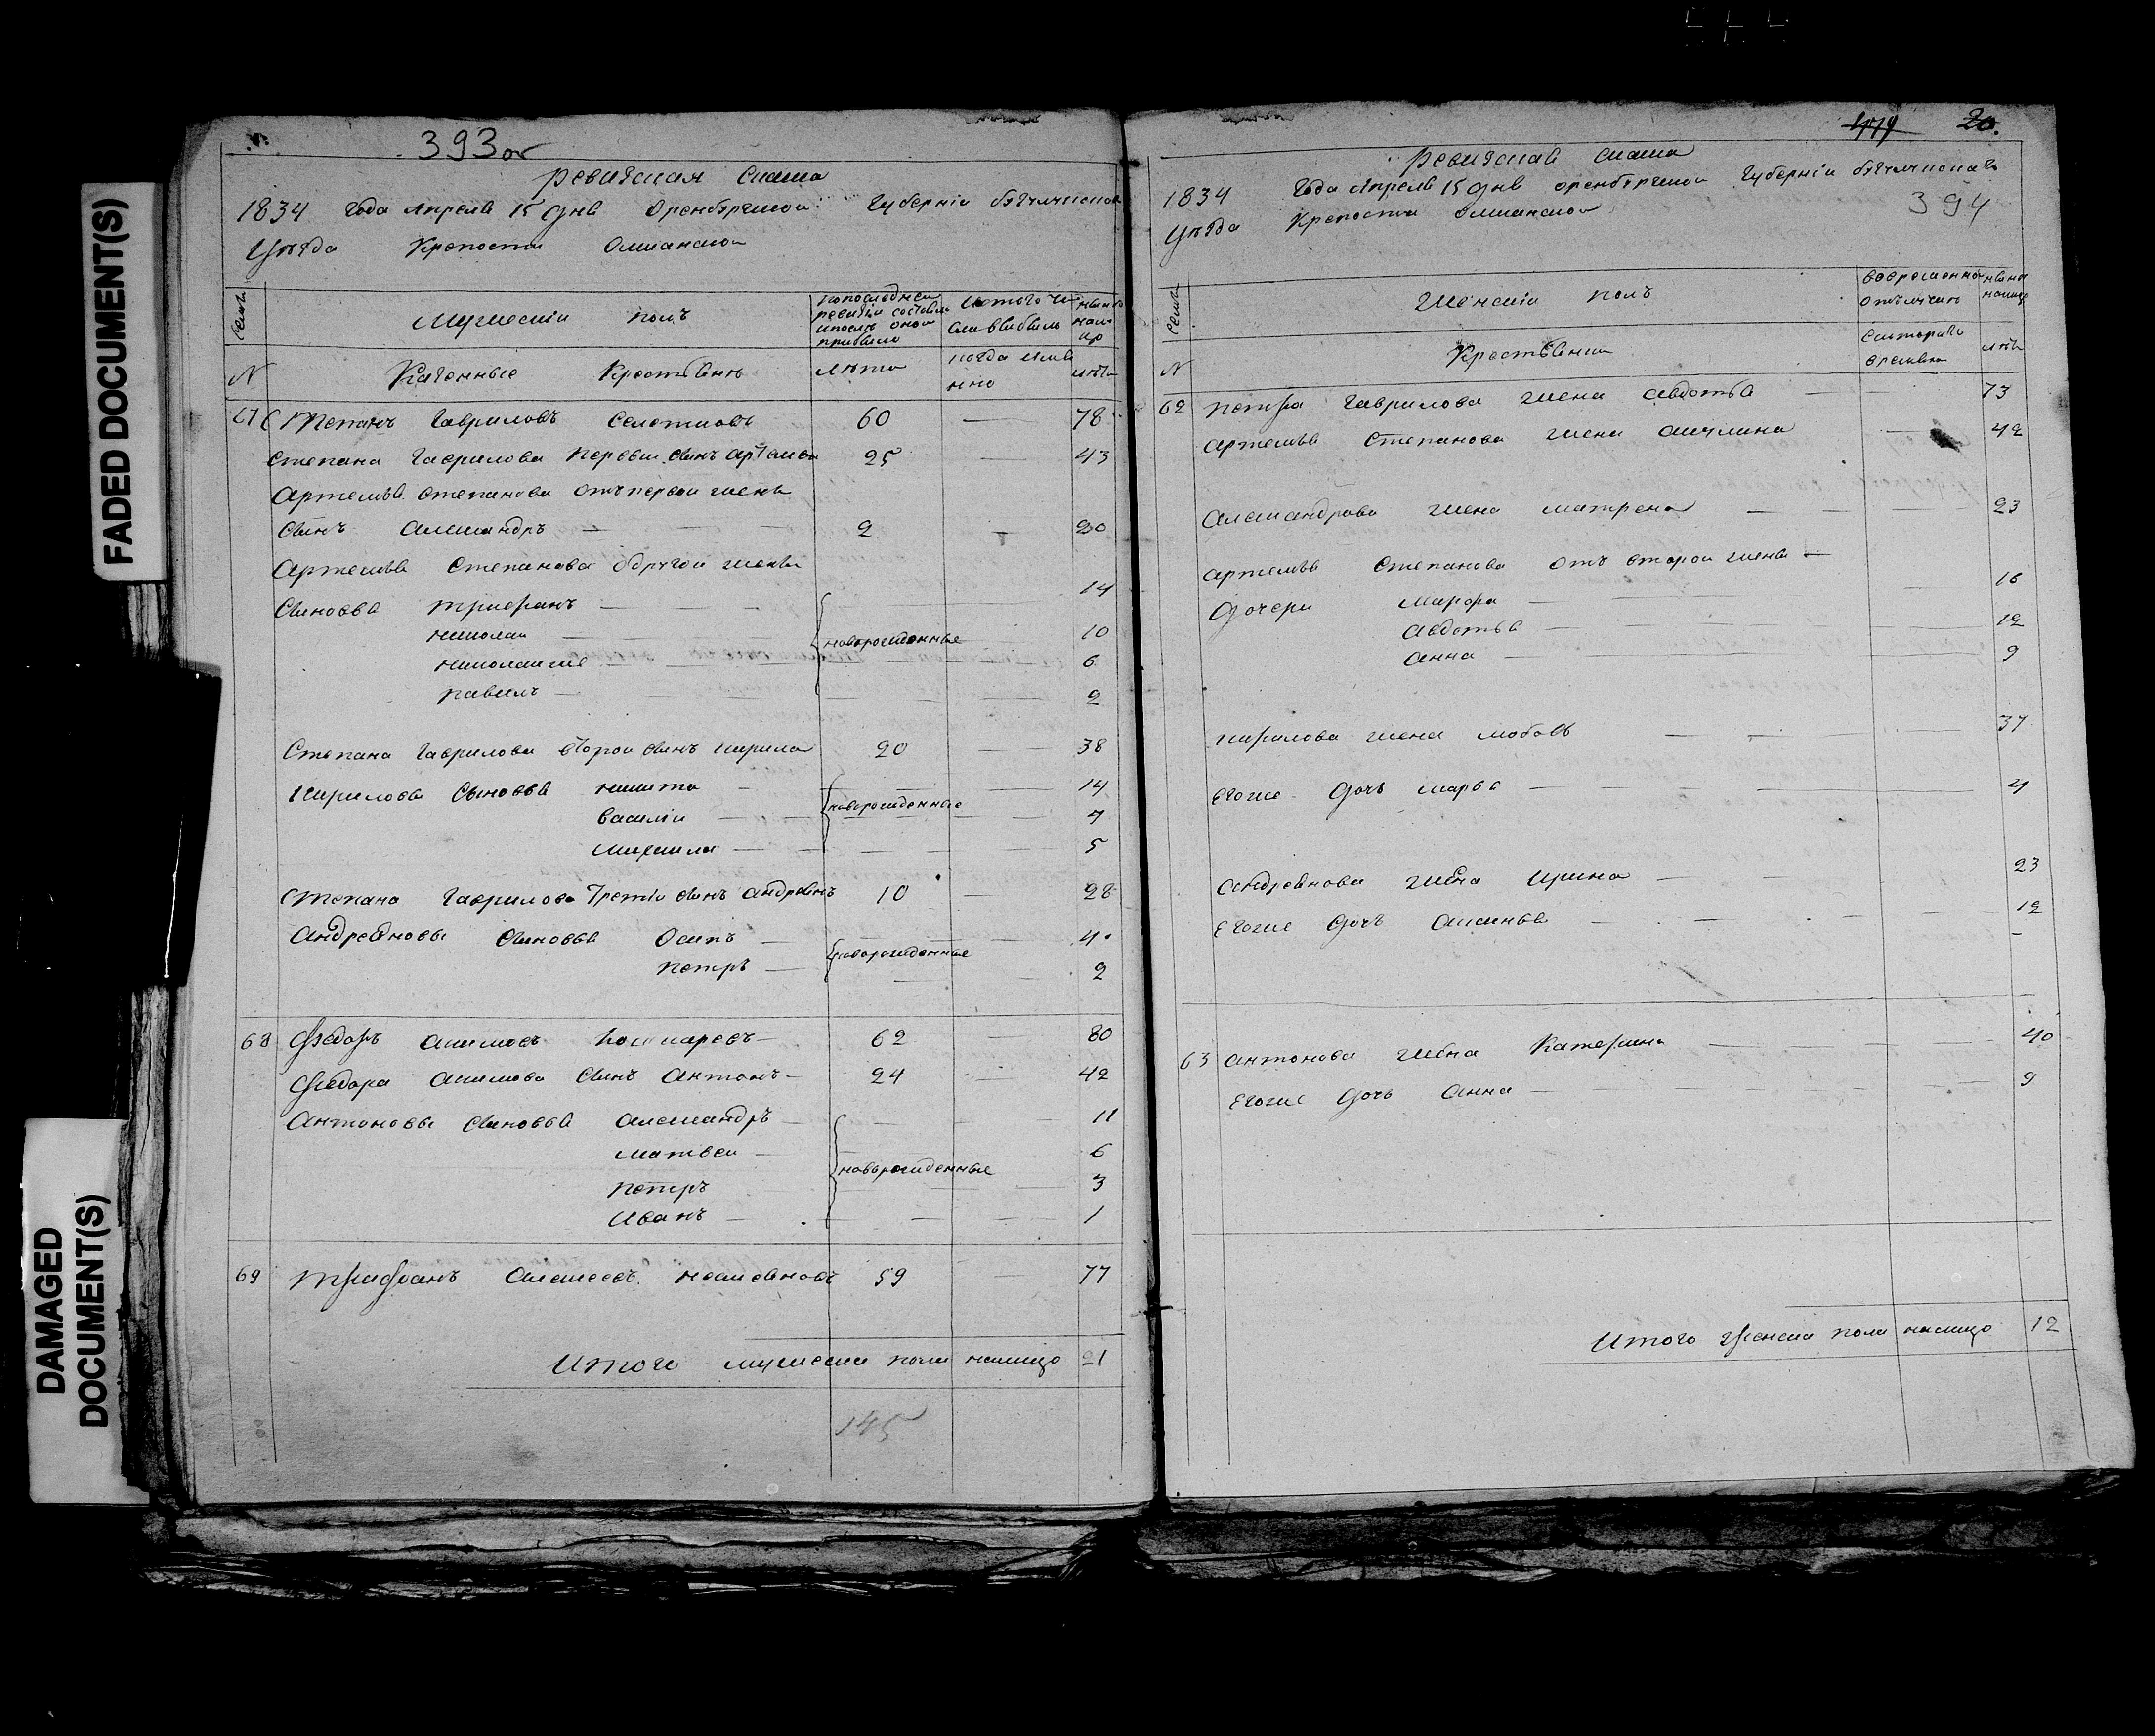 FADED DOCUMENT(S)
DAMAGED DOCUMENT(S)
393об
Ревизская Сказка
1834 Года Апреля 15 дня Оренбургской Губернии
Уѣзда Крепости
Семьи
Мужескiй полъ
по последней ревизiи состояло и послѣ оной прибыло
Изтого числа выбыло
ныне на лицо
N
Казенные Крестьяне
Лѣта
когда имянно
лѣта
Степанъ Гавриловъ 60 — 78
Степана Гаврилова первый сынъ Артемей 25 — 43
Артемья Степанова отъ первой жены
Сынъ Александръ — 2 — 20
Артемья Степанова одругой жены
Сыновья Трифанъ — 14
Николай — новорожденные 10
Николай же — 6
Павилъ — 2
Степана Гаврилова второй сынъ Кирила 20 — 38
Кириловы Сыновья Никита — 14
Василiй — новорожденные 7
Михаила — 5
Степана Гаврилова Третiй сынъ Андреянъ 10 — 28
Андреяновы Сыновья Осипъ — 4
Петръ — новорожденные 2
68 Федоръ Акимовъ 62 — 80
Федора Акимова Сынъ Антонъ — 24 — 42
Антоновы Сыновья Александръ — 11
Матвей — 6
Петръ новорожденные 3
Иванъ — 1
69 Трифанъ Алексеевъ 59 — 77
Итого мужеска пола налицо 21
145
479 20.
Ревизская Сказка
1834 Года Апреля 15 дня Оренбургской Губернiи
394
Уѣзда Крепости
Семьи
Женскiй полъ
Вовременной отлучкѣ
ныне налицо
N
Крестьянки
Скотораго времени
лѣта
62 Петра Гаврилова жена Авдотья — 73
Артемья Степанова жена Акулина — 42
Александрова жена Матрена — 23
Артемья Степанова отъ второй жены —
Дочери Марфа — 16
Авдотья — 12
Анна — 9
Кирилова жена Любовь — 37
Егоже Дочь Марья — 4
Андреянова жена Ирина — 23
Егоже Дочь Аксинья — 12
63 Антонова жена Катерина — 40
Егоже Дочь Анна — 9
Итого Женска пола налицо 12